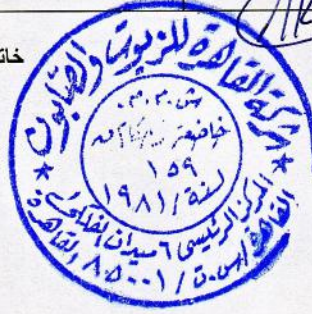 خات
شركة القاهرة للزيوت والصابون
ش.م.م.
خاضعة
١٥٩
لسنة / ١٩٨١
المركز الرئيسى ٦ ميدان الفلكى
القاهرة
س.ت / ٨٥٠٠١ القاهرة